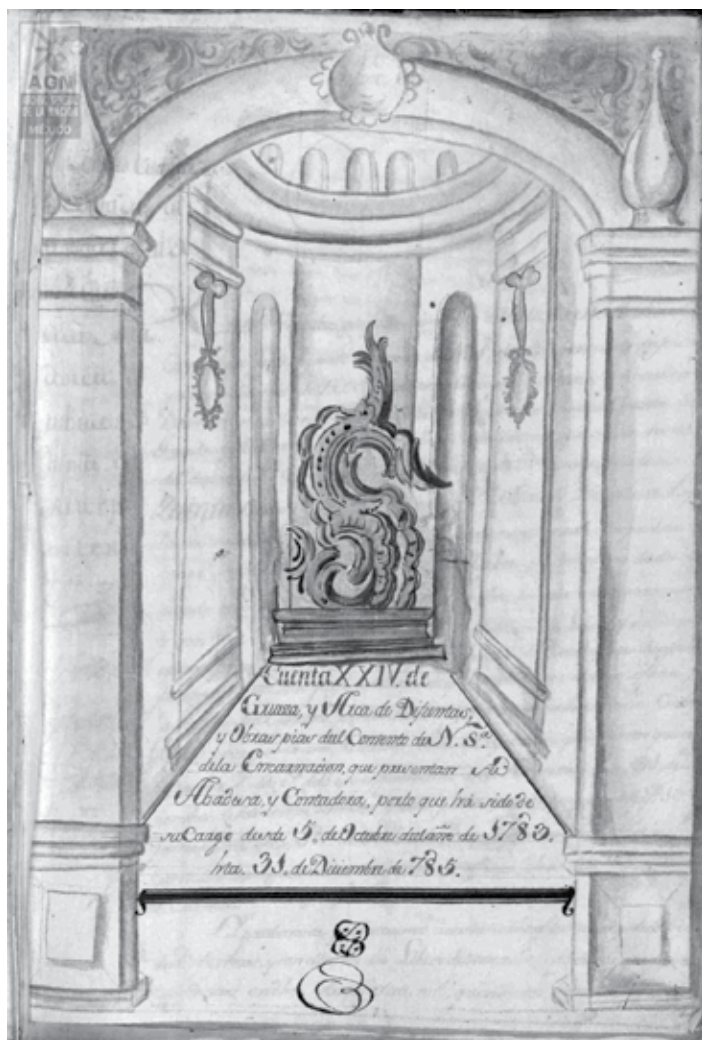 AGN
MÉXICO
Cuenta XXIV. de
y Arca de Difuntas,
y Obras pias del Convento de N. Sra.
de la Encarnacion, que presentan
Abadesa, y Contadora, por lo que há sido de
su Cargo desde 5. de Octubre del año de 1783.
hta. 31. de Diciembre de 785.